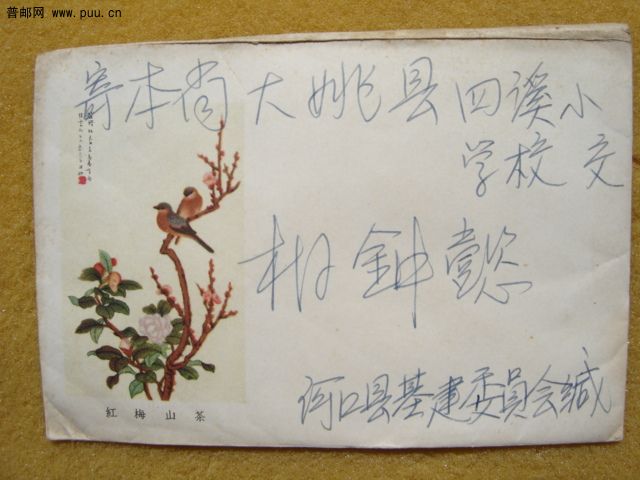 普邮网 www.puu.cn
寄本省大姚县四溪小
学校交
钟懿
河口县基建委員会缄
紅梅山茶